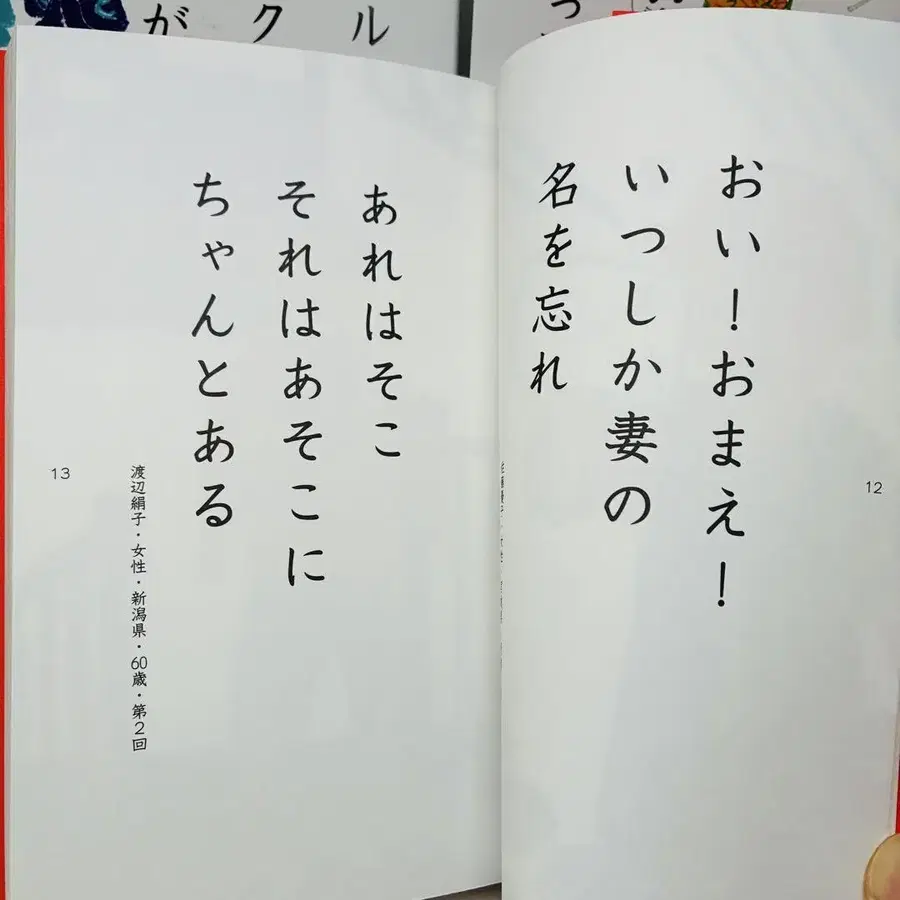 おい！おまえ！
いつしか妻の
名を忘れ
12
あれはそこ
それはあそこに
ちゃんとある
渡辺絹子・女性・新潟県・60歳・第2回
13
ル
ク
が